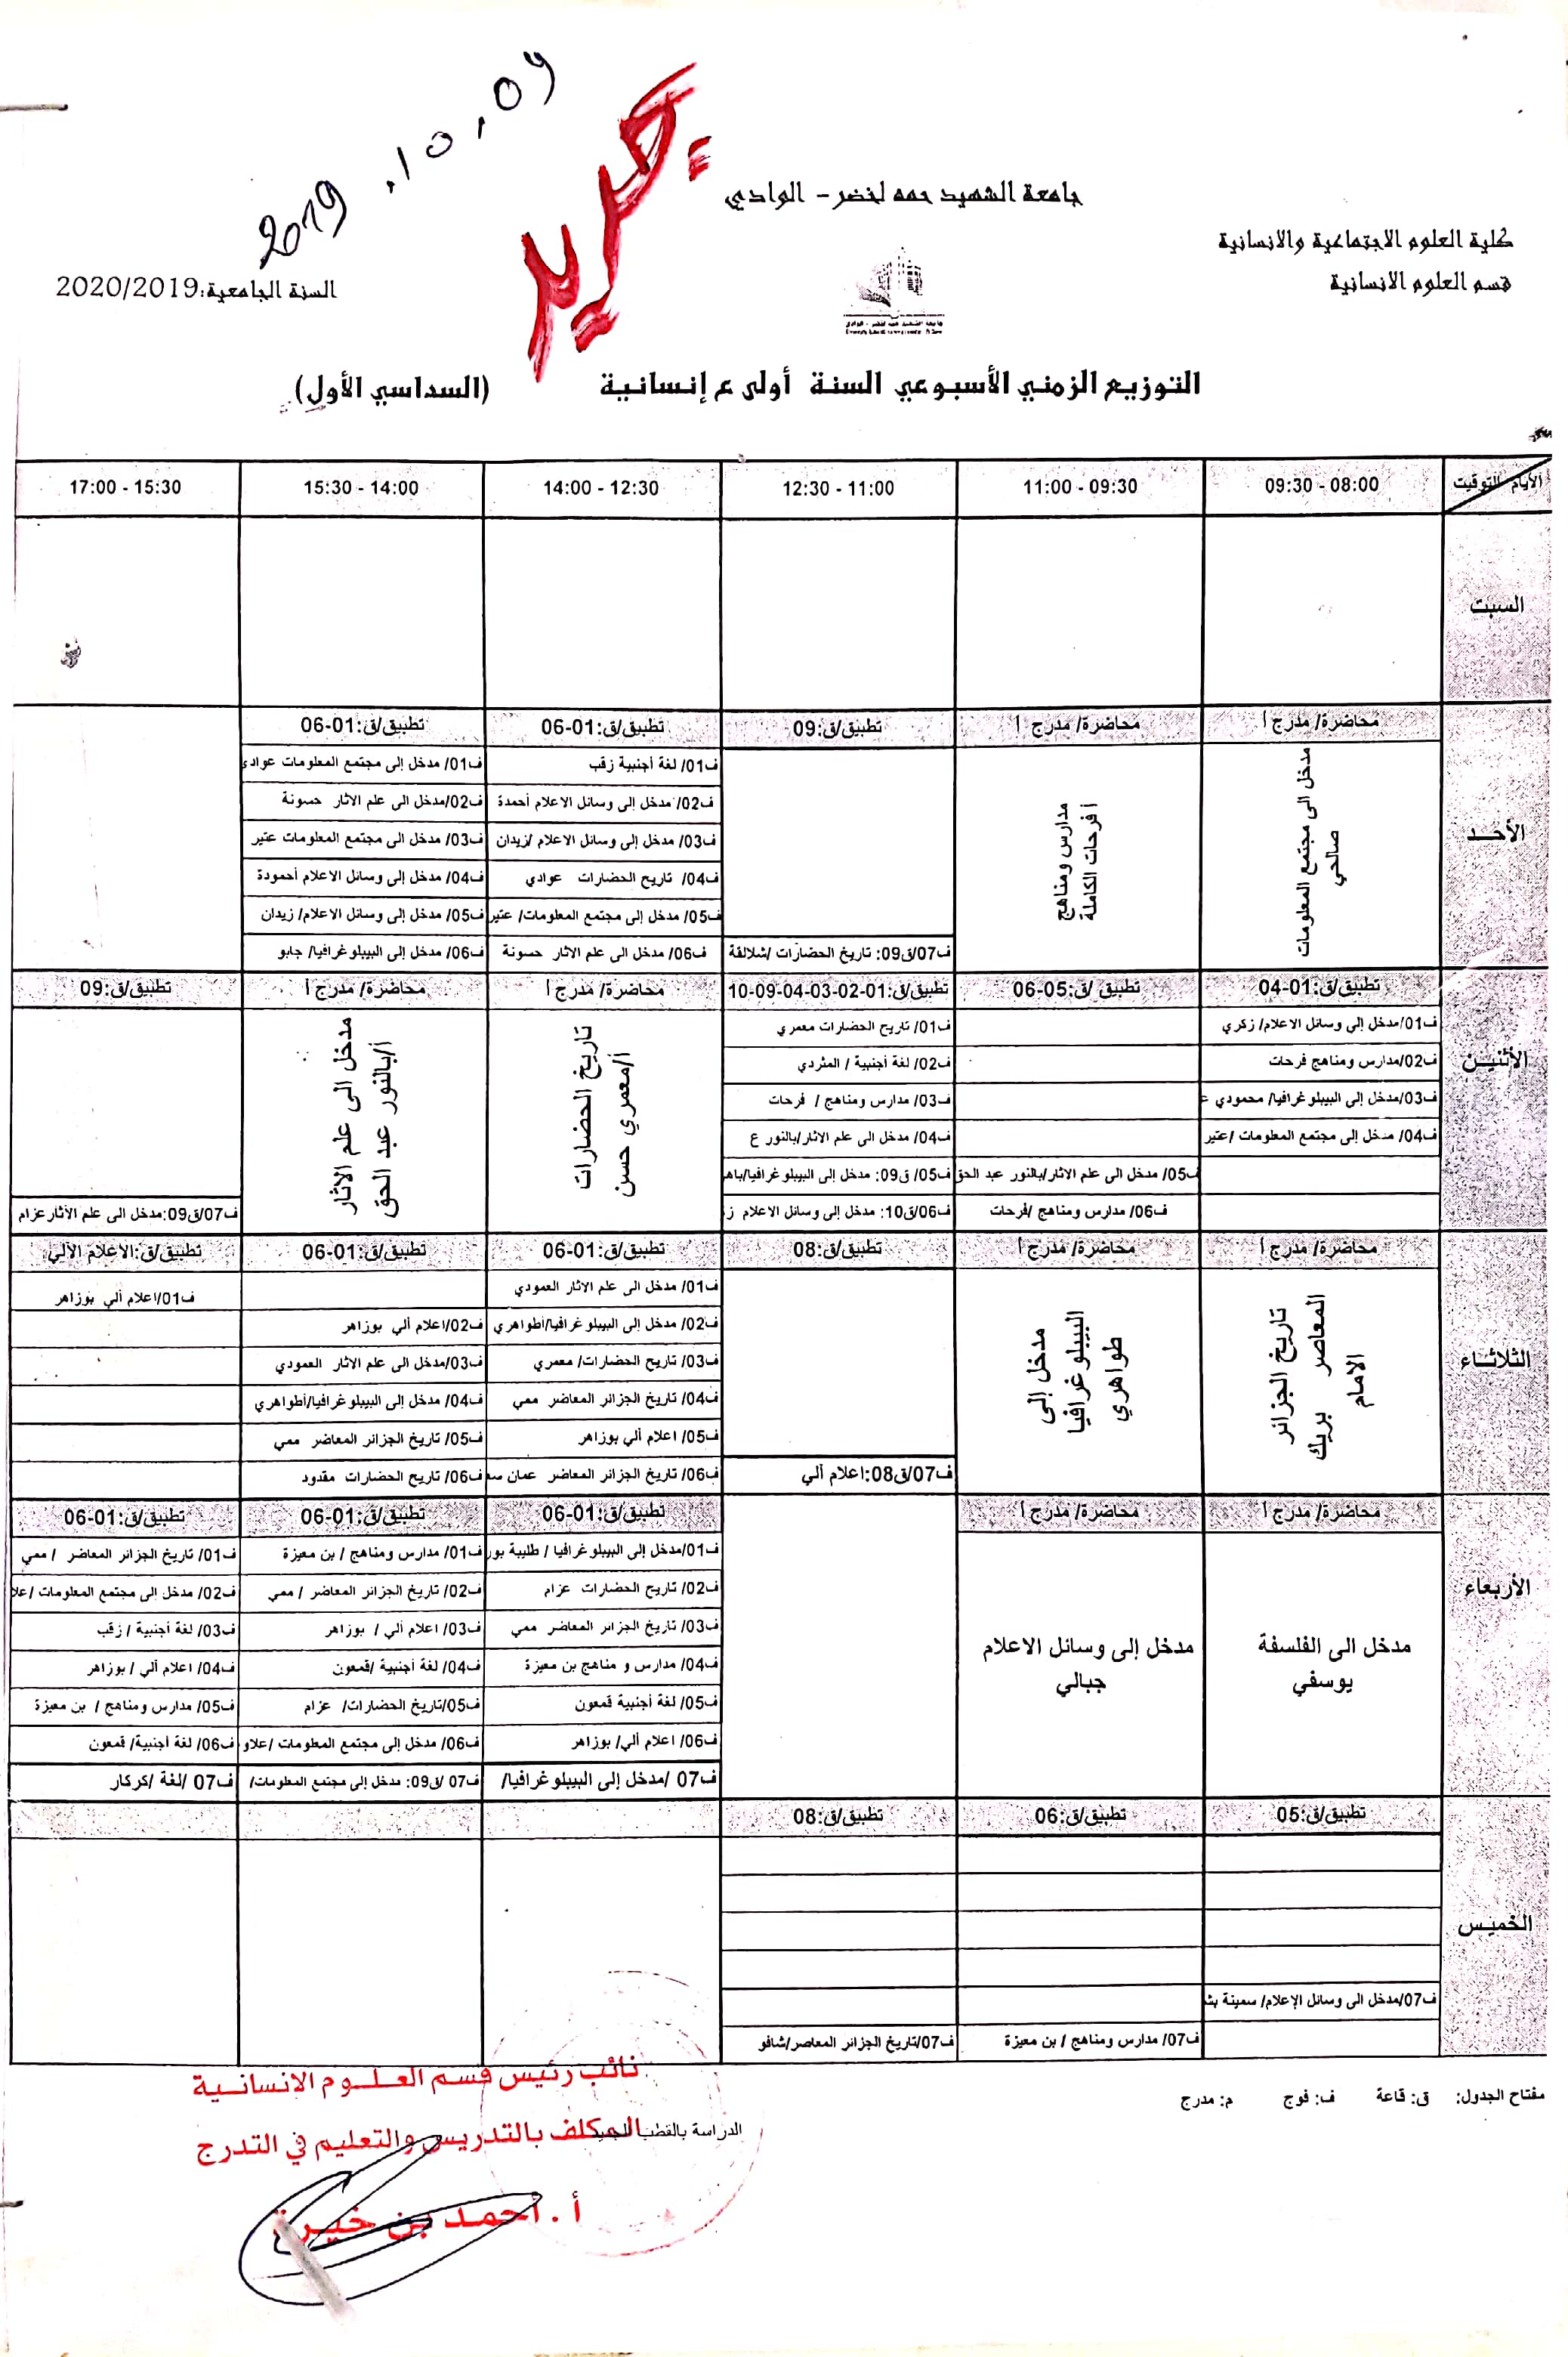 2019.10.09
جديد
جامعة الشهيد حمه لخضر - الوادي
كلية العلوم الاجتماعية والانسانية
قسم العلوم الانسانية
السنة الجامعية:2020/2019
التوزيع الزمني الأسبوعي السنة أولى ع إنسانية (السداسي الأول)
الأيام التوقيت
08:00 - 09:30
09:30 - 11:00
11:00 - 12:30
12:30 - 14:00
14:00 - 15:30
15:30 - 17:00
السبت
الأحد
محاضرة/ مدرج أ
مدخل الى مجتمع المعلومات
صالحي
محاضرة/ مدرج أ
مدارس ومناهج
أ فرحات الكاملة
تطبيق/ق:09
ف07/ق09: تاريخ الحضارات /شلالقة
تطبيق/ق:01-06
ف01/ لغة أجنبية زقب
ف02/ مدخل إلى وسائل الاعلام أحمدة
ف03/ مدخل إلى وسائل الاعلام /زيدان
ف04/ تاريخ الحضارات عوادي
ف05/ مدخل إلى مجتمع المعلومات/ عتير
ف06/ مدخل الى علم الاثار حسونة
تطبيق/ق:01-06
ف01/ مدخل إلى مجتمع المعلومات عوادي
ف02/مدخل الى علم الاثار حسونة
ف03/ مدخل الى مجتمع المعلومات عتير
ف04/ مدخل إلى وسائل الاعلام أحمودة
ف05/ مدخل إلى وسائل الاعلام/ زيدان
ف06/ مدخل إلى البيبلوغرافيا/ جابو
الأثنين
تطبيق/ق:01-04
ف01/مدخل إلى وسائل الاعلام/ زكري
ف02/مدارس ومناهج فرحات
ف03/مدخل إلى البيبلوغرافيا/ محمودي ع
ف04/ مدخل إلى مجتمع المعلومات /عتير
تطبيق /ق:05-06
ف05/ مدخل الى علم الاثار/بالنور عبد الحق
ف06/ مدارس ومناهج /فرحات
تطبيق/ق:01-02-03-04-09-10
ف01/ تاريخ الحضارات معمري
ف02/ لغة أجنبية / المثردي
ف03/ مدارس ومناهج / فرحات
ف04/ مدخل الى علم الاثار/بالنور ع
ف05/ ق09: مدخل إلى البيبلوغرافيا/باهي
ف06/ق10: مدخل إلى وسائل الاعلام ز
محاضرة/ مدرج أ
تاريخ الحضارات
أ/معمري حسن
محاضرة/ مدرج أ
مدخل الى علم الاثار
أ/بالنور عبد الحق
تطبيق/ق:09
ف07/ق09:مدخل الى علم الأثار عزام
الثلاثاء
محاضرة/ مدرج أ
تاريخ الجزائر
المعاصر بريك
الامام
محاضرة/ مدرج أ
مدخل إلى
البيبلوغرافيا
طواهري
تطبيق/ق:08
ف07/ق08:اعلام ألي
تطبيق/ق:01-06
ف01/ مدخل الى علم الاثار العمودي
ف02/ مدخل إلى البيبلوغرافيا/أطواهري
ف03/ تاريخ الحضارات/ معمري
ف04/ تاريخ الجزائر المعاضر ممي
ف05/ اعلام ألي بوزاهر
ف06/ تاريخ الجزائر المعاضر عمان سع
تطبيق/ق:01-06
ف02/اعلام ألي بوزاهر
ف03/مدخل الى علم الاثار العمودي
ف04/ مدخل إلى البيبلوغرافيا/أطواهري
ف05/ تاريخ الجزائر المعاضر ممي
ف06/ تاريخ الحضارات مقدود
تطبيق/ق:الاعلام الألي
ف01/اعلام ألي بوزاهر
الأربعاء
محاضرة/ مدرج أ
مدخل الى الفلسفة
يوسفي
محاضرة/ مدرج أ
مدخل إلى وسائل الاعلام
جبالي
تطبيق/ق:01-06
ف01/مدخل إلى البيبلوغرافيا / طليبة بور
ف02/ تاريخ الحضارات عزام
ف03/ تاريخ الجزائر المعاضر ممي
ف04/ مدارس و مناهج بن معيزة
ف05/ لغة أجنبية قمعون
ف06/ اعلام ألي/ بوزاهر
ف07 /مدخل إلى البيبلوغرافيا/
تطبيق/ق:01-06
ف01/ مدارس ومناهج / بن معيزة
ف02/ تاريخ الجزائر المعاضر / ممي
ف03/ اعلام ألي / بوزاهر
ف04/ لغة أجنبية /قمعون
ف05/تاريخ الحضارات/ عزام
ف06/ مدخل إلى مجتمع المعلومات /علاو
ف07 /ق09: مدخل إلى مجتمع المعلومات/
تطبيق/ق:01-06
ف01/ تاريخ الجزائر المعاضر / ممي
ف02/ مدخل إلى مجتمع المعلومات /علا
ف03/ لغة أجنبية / زقب
ف04/ اعلام ألي / بوزاهر
ف05/ مدارس ومناهج / بن معيزة
ف06/ لغة أجنبية/ قمعون
ف07 /لغة /كركار
الخميس
تطبيق/ق:05
ف07/مدخل الى وسائل الإعلام/ سمينة بش
تطبيق/ق:06
ف07/ مدارس ومناهج / بن معيزة
تطبيق/ق:08
ف07/تاريخ الجزائر المعاصر/شافو
مفتاح الجدول: ق: قاعة ف: فوج م: مدرج
الدراسة بالقطب
نائب رئيس قسم العلوم الانسانية
المكلف بالتدريس والتعليم في التدرج
أ. أحمد بن خيرة